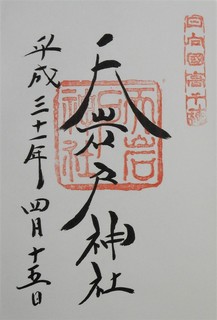 日向國高千穂
天岩戸神社
天岩戸神社
平成三十一年四月十五日